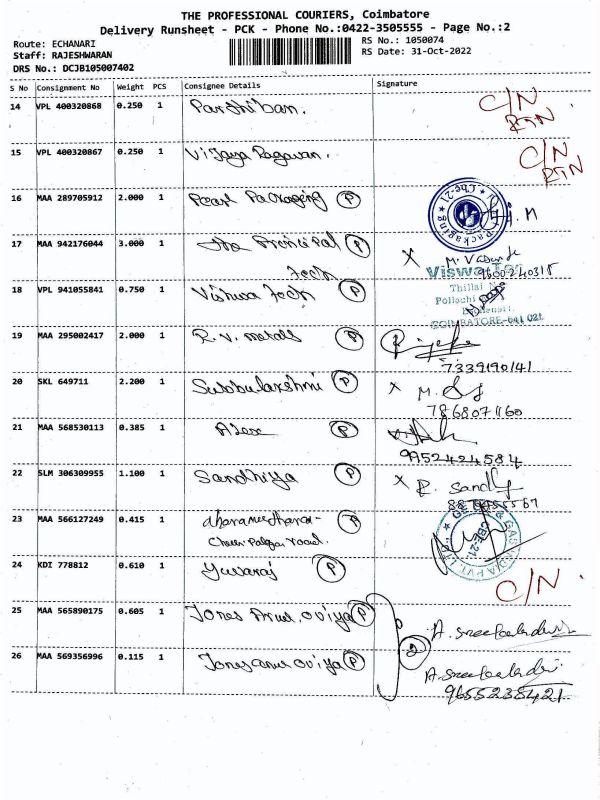 THE PROFESSIONAL COURIERS, Coimbatore
Delivery Runsheet - PCK - Phone No.:0422-3505555 - Page No.:2
Route: ECHANARI
Staff: RAJESHWARAN
RS No.: 1050074
RS Date: 31-Oct-2022
DRS No.: DCJB105007402
S No Consignment No Weight PCS Consignee Details Signature
14 VPL 400320868 0.250 1 Parthiban. C/N RTN
15 VPL 400320867 0.250 1 Vijaya Ragavan. C/N RTN
16 MAA 289705912 2.000 1 Pearl Packaging P
17 MAA 942176044 3.000 1 The Principal P
Tech
18 VPL 941055841 0.750 1 Vishwa Tech P
Viswa
Thillai
Pollachi
COIMBATORE-641 021.
19 MAA 295002417 2.000 1 R.V. metals P
7339190141
20 SKL 649711 2.200 1 P
7868071160
21 MAA 568530113 0.385 1 Alex P
9952424584
22 SLM 306309955 1.100 1 Sandhiya P
23 MAA 566127249 0.415 1 P
road.
24 KDI 778812 0.610 1 Yuvaraj P C/N.
25 MAA 565890175 0.605 1 Jones oviya P
2
26 MAA 569356996 0.115 1 oviya P
9655238421